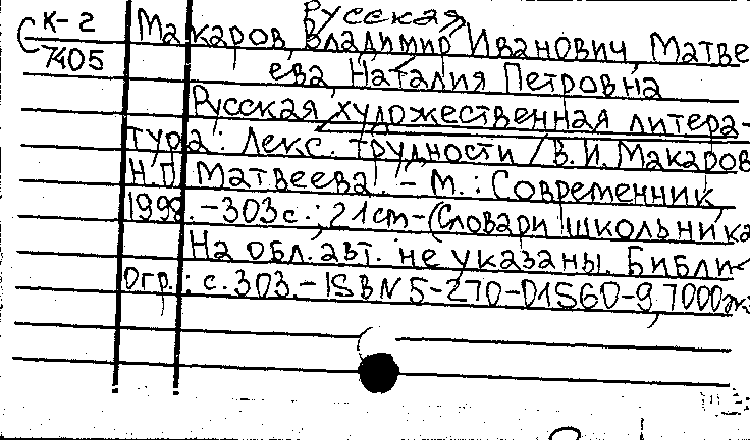 Русская
С К-2
7405
Макаров, Владимир Иванович, Матве
ева, Наталия Петровна
Русская художественная литера-
тура: Лекс. трудности / В.И. Макаров
Н.П. Матвеева. - М.: Современник,
1998. - 303 с.; 21 cm - (Словари школьника
На обл. авт. не указаны. Библи-
огр.: с. 303. - ISBN 5-270-01560-9, 7000 эк